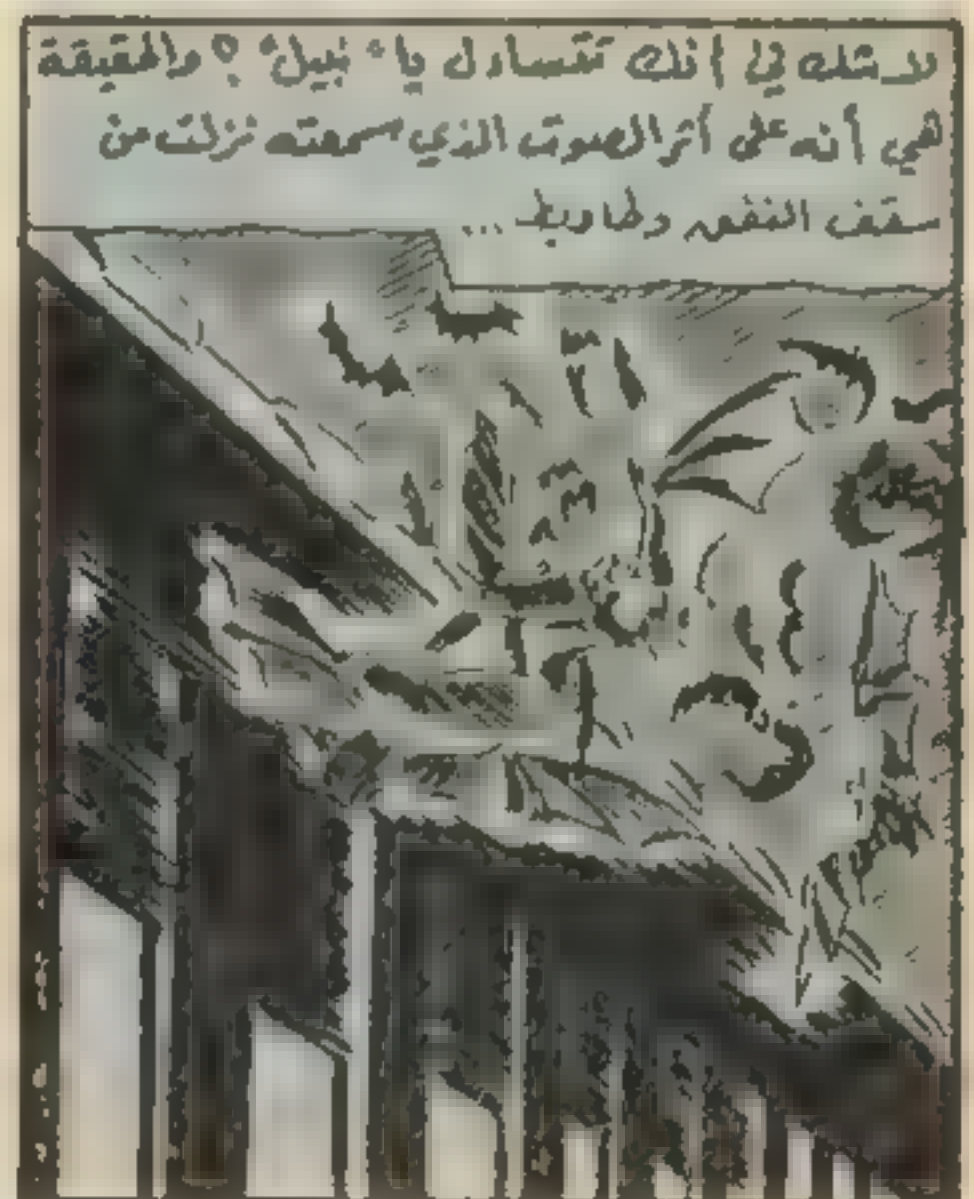 لا شك في أنك تتساءل يا "نبيل" ؟ والحقيقة
هي أنه على أثر الصوت الذي سمعته نزلت من
سقف النفق وطاويط ...